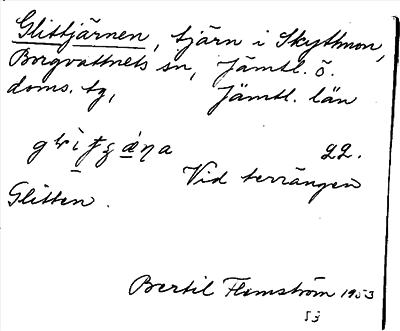 Glittjärnen, tjärn i Skyttmon,
Borgvattnets sn, Jämtl. ö.
doms. tg, Jämtl. län
22.
Vid terrängen
Glitten.
Bertil Flemström 1953